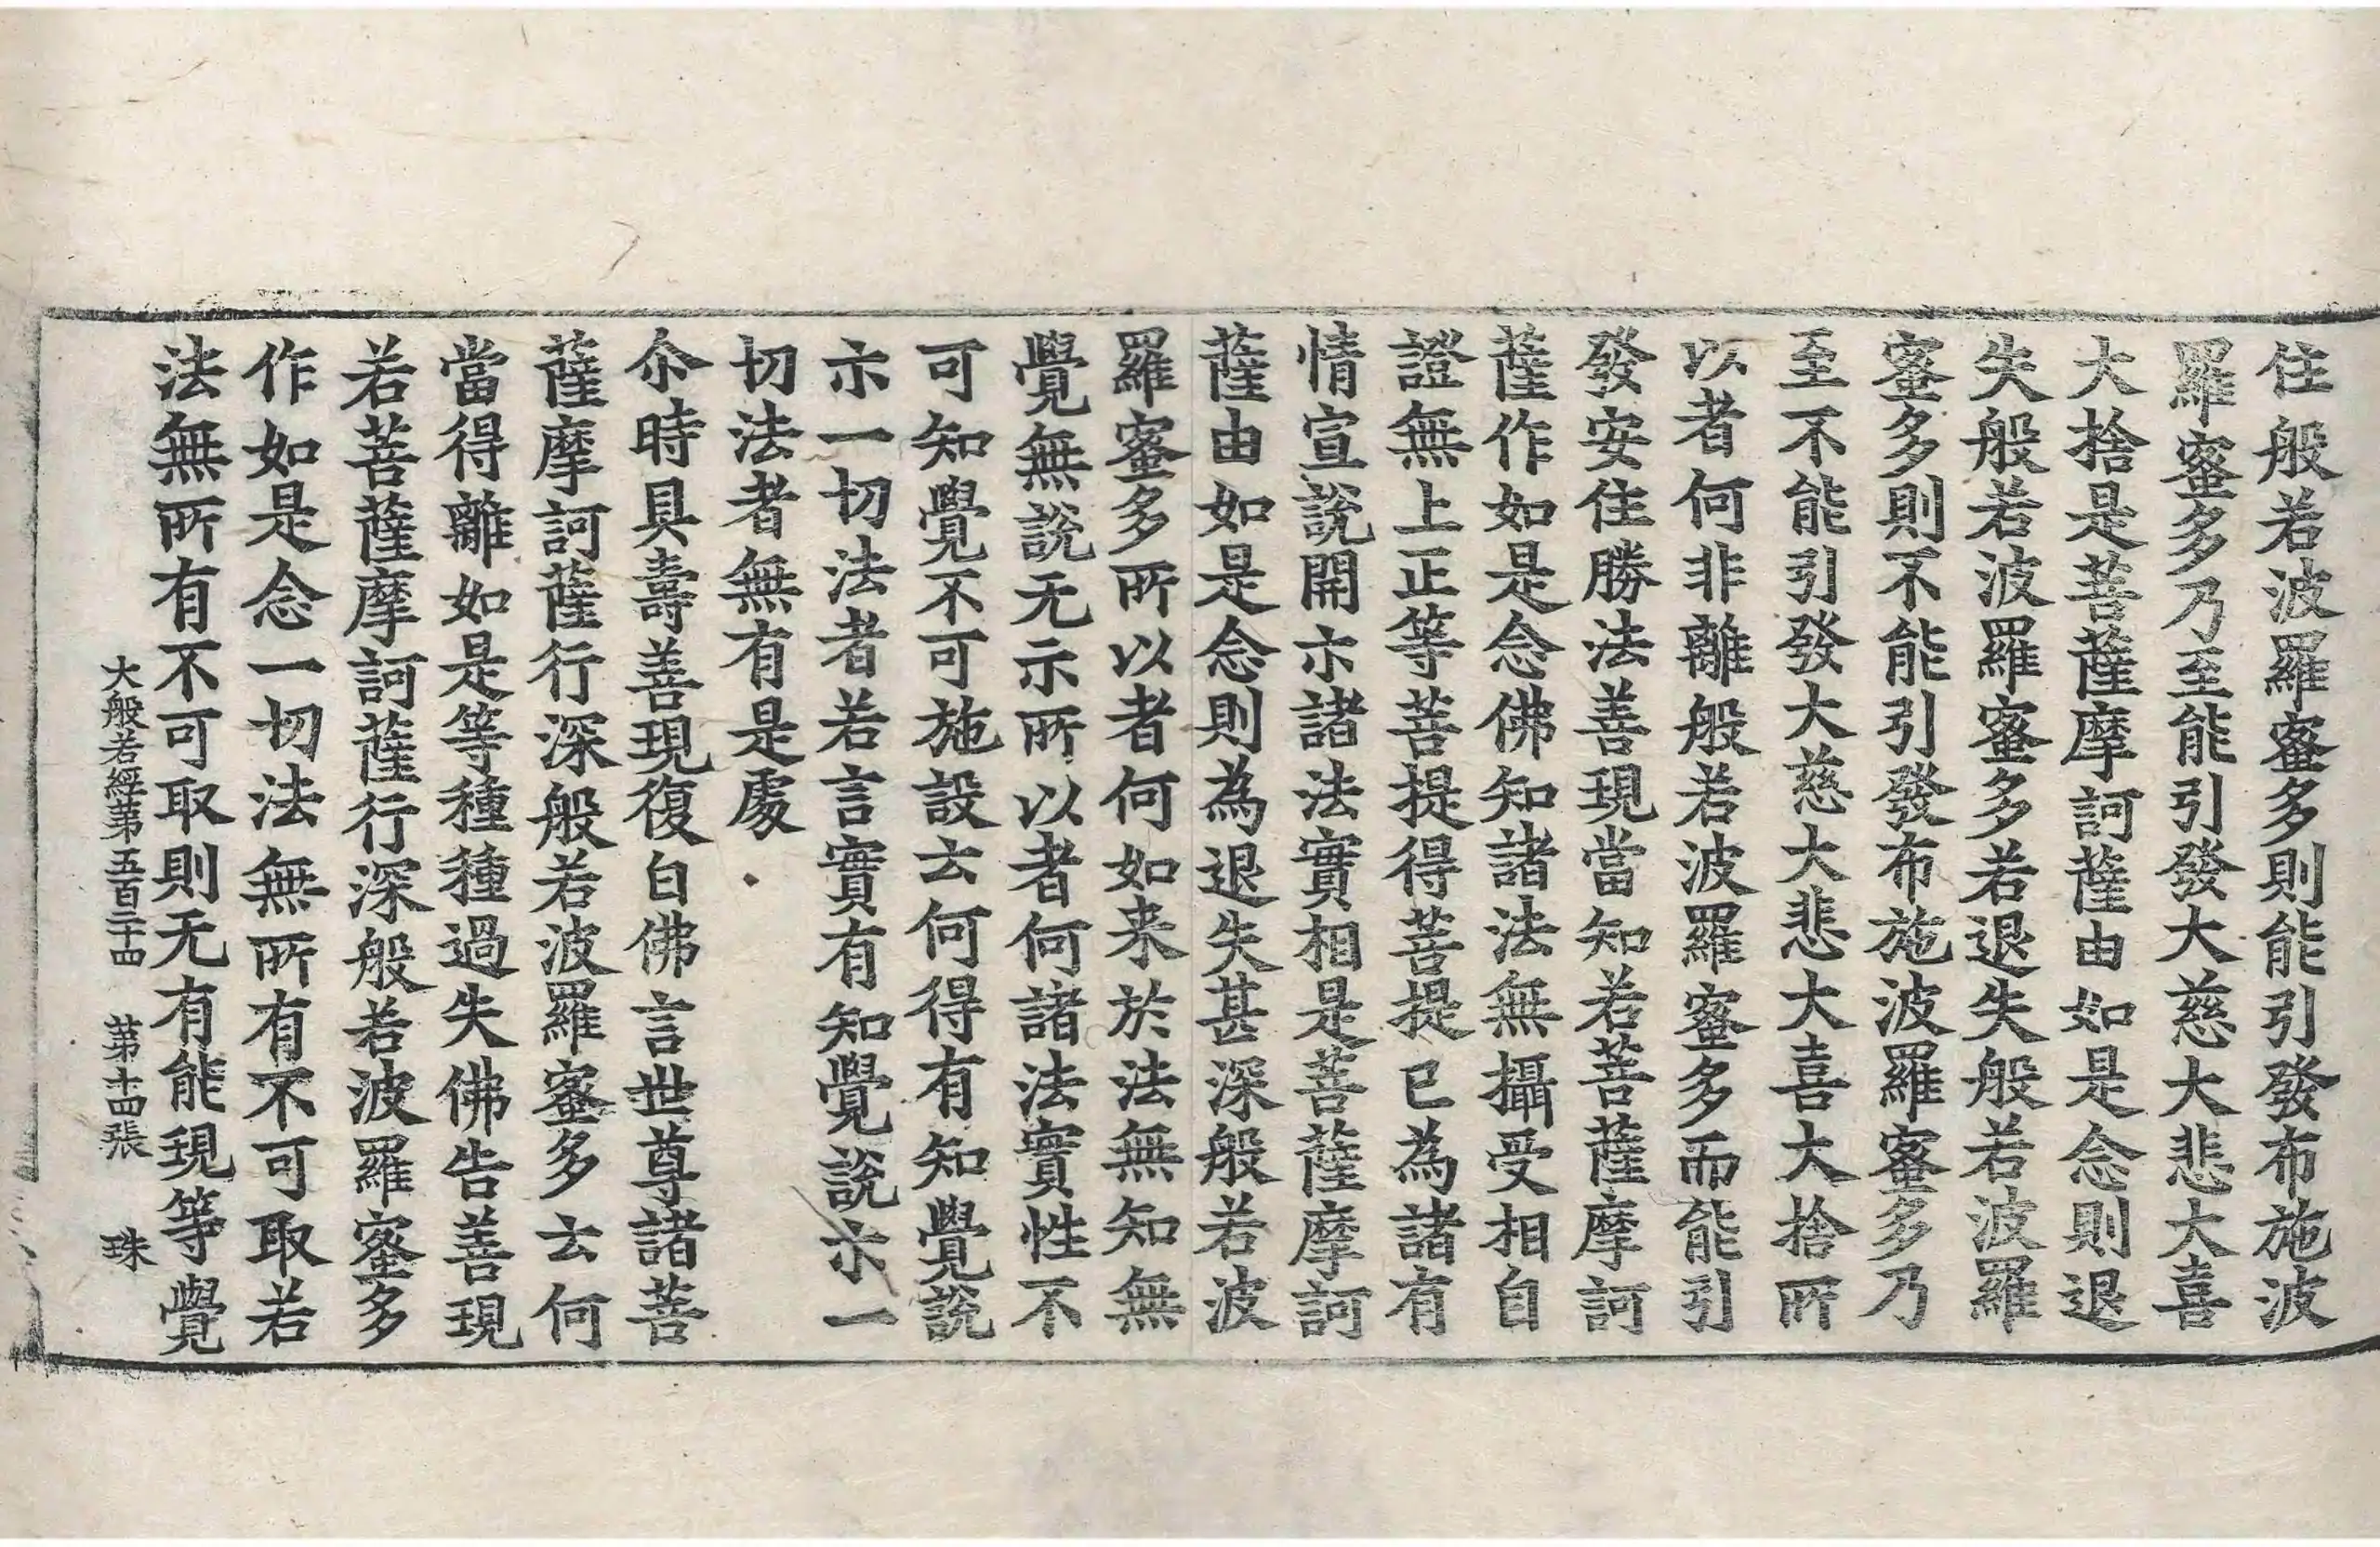 住般若波羅蜜多則能引發布施波
羅蜜多乃至能引發大慈大悲大喜
大捨是菩薩摩訶薩由如是念則退
失般若波羅蜜多若退失般若波羅
蜜多則不能引發布施波羅蜜多乃
至不能引發大慈大悲大喜大捨所
以者何非離般若波羅蜜多而能引
發安住勝法善現當知若菩薩摩訶
薩作如是念佛知諸法無攝受相自
證無上正等菩提得菩提已為諸有
情宣說開示諸法實相是菩薩摩訶
薩由如是念則為退失甚深般若波
羅蜜多所以者何如来於法無知無
覺無說无示所以者何諸法實性不
可知覺不可施設云何得有知覺說
示一切法者若言實有知覺說示一
切法者無有是處
尒時具壽善現復白佛言世尊諸菩
薩摩訶薩行深般若波羅蜜多云何
當得離如是等種種過失佛告善現
若菩薩摩訶薩行深般若波羅蜜多
作如是念一切法無所有不可取若
法無所有不可取則无有能現等覺
大般若經第五百二十四 第十四張 珠